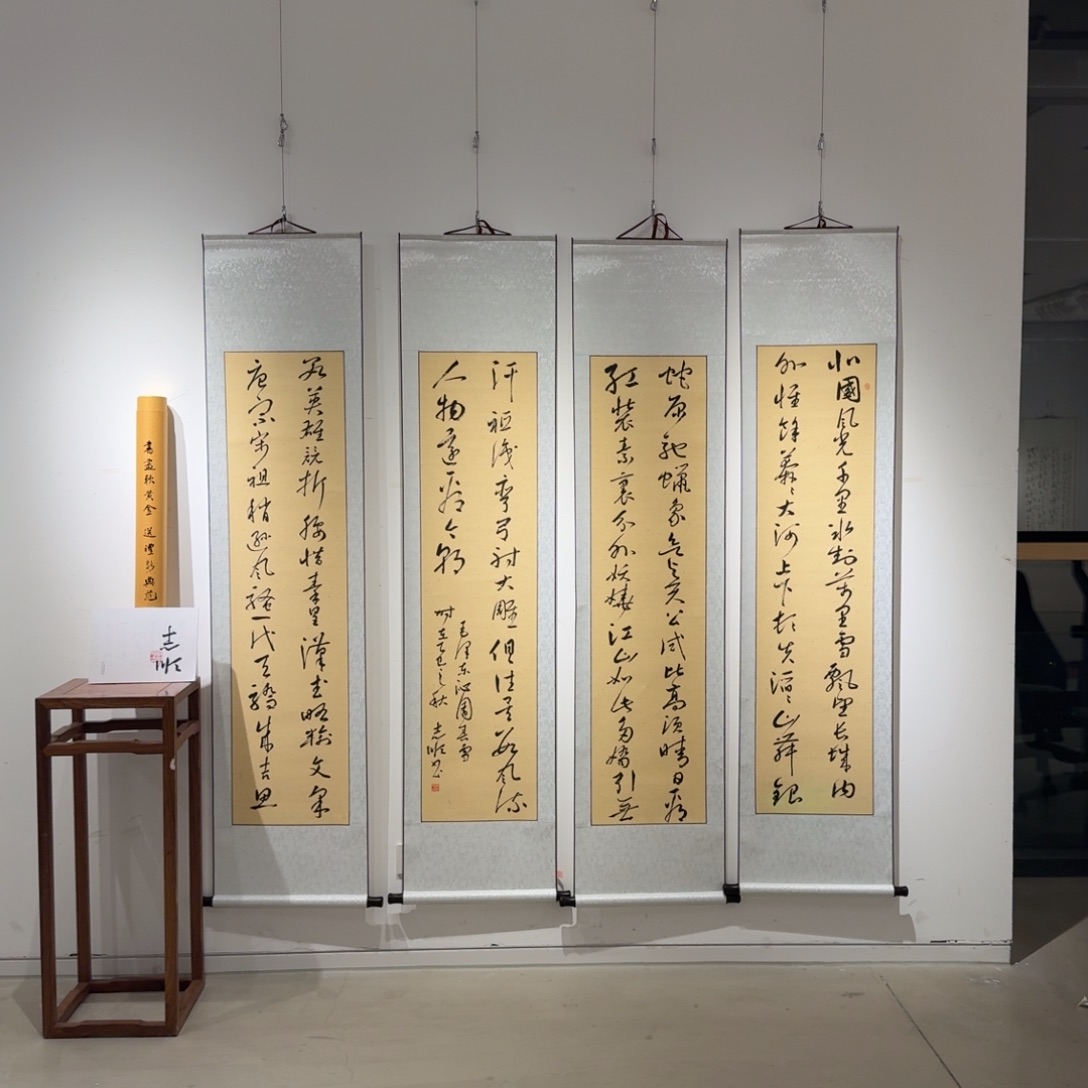 北國風光千里冰封萬里雪飄望長城內
外惟餘莽〻大河上下頓失滔〻山舞銀
蛇原馳蠟象欲與天公試比高須晴日看
紅裝素裹分外妖嬈江山如此多嬌引無
汗祗識彎弓射大雕俱往矣數風流
人物還看今朝
毛澤東沁園春雪
時在乙巳之秋 志順書
數英雄競折腰惜秦皇漢武略輸文采
唐宗宋祖稍遜風騷一代天驕成吉思
書畫軟黃金 送禮彰典范
志順